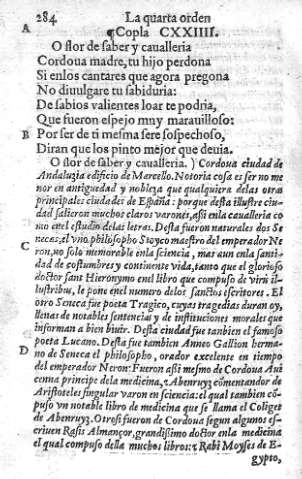 284 La quarta orden
A
¶Copla CXXIIII.
O flor de saber y caualleria
Cordoua madre, tu hijo perdona
Si enlos cantares que agora pregona
No diuulgare tu sabiduria:
De sabios valientes loar te podria,
Que fueron espejo muy marauilloso:
B Por ser de ti mesma sere sospechoso,
Diran que los pinto mejor que deuia.
O flor de saber y caualleria.) Cordoua ciudad de
Andaluzia edificio de Marcello. Notoria cosa es ser no me
nor en antiguedad y nobleza que qualquiera delas otras
principales ciudades de España: porque desta illustre ciu
dad salieron muchos claros varones, assi enla caualleria co
mo enel estudio delas letras. Desta fueron naturales dos Se
C necas, el vno philosopho Stoyco maestro del emperador Ne
ron, no solo memorable enla sciencia, mas aun enla sancti-
dad de costumbres y continente vida, tanto que el glorioso
doctor sant Hieronymo enel libro que compuso de viris il-
lustribus, le pone enel numero delos sanctos escritores. El
otro Seneca fue poeta Tragico, cuyas tragedias duran oy,
llenas de notables sentencias y de instituciones morales que
informan a bien biuir. Desta ciudad fue tambien el famoso
poeta Lucano. Desta fue tambien Anneo Gallion herma-
D no de Seneca el philosopho, orador excelente en tiempo
del emperador Neron: Fueron assi mesmo de Cordoua Aui
cenna principe dela medicina, z Abenruyz cōmentandor de
Aristoteles singular varon en sciencia: el qual tambien cō-
puso vn notable libro de medicina que se llama el Coliget
de Abenruyz. Otrosi fueron de Cordoua segun algunos es-
criuen Rasis Almançor, grandissimo doctor enla medicina
el qual compuso della muchos libros: z Rabi Moyses de E-
gypto,